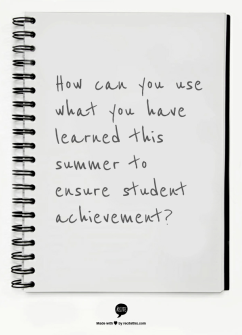 How can you use
what you have
learned this
summer to
ensure student
achievement?
Made with ♥ by recitethis.com